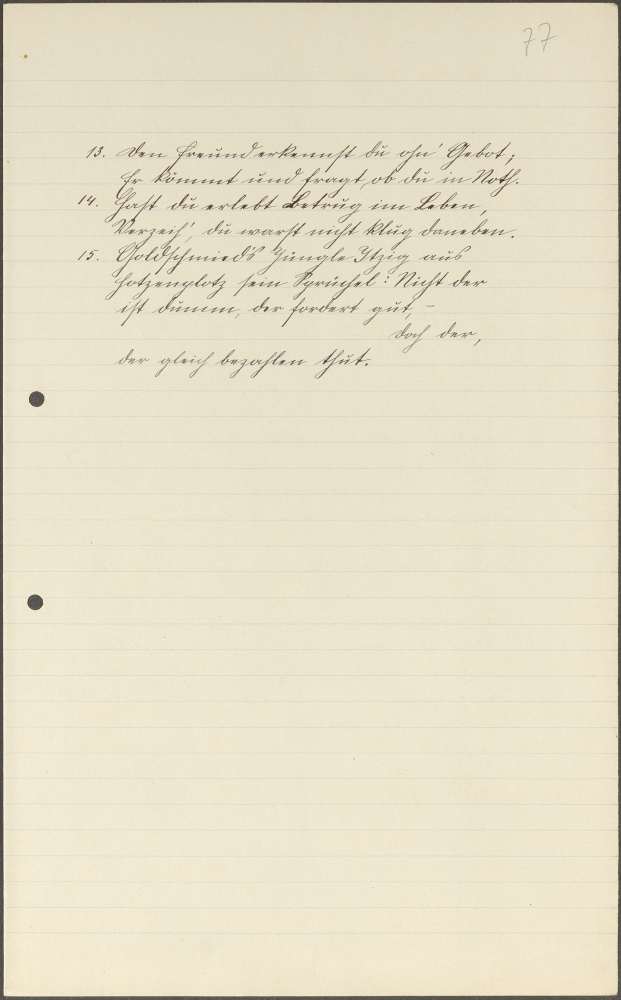 77
13. Den Freund erkennst du ohn' Gebot;
Er kommt und fragt, ob du in Noth.
14. Hast du erlebt Betrug im Leben,
Verzeih', du warst nicht klug daneben.
15. Goldschmied's Jüngle Itzig aus
Hotzenplotz sein Sprüchel: Nicht der
ist dumm, der fordert gut, –
doch der,
der gleich bezahlen thut.